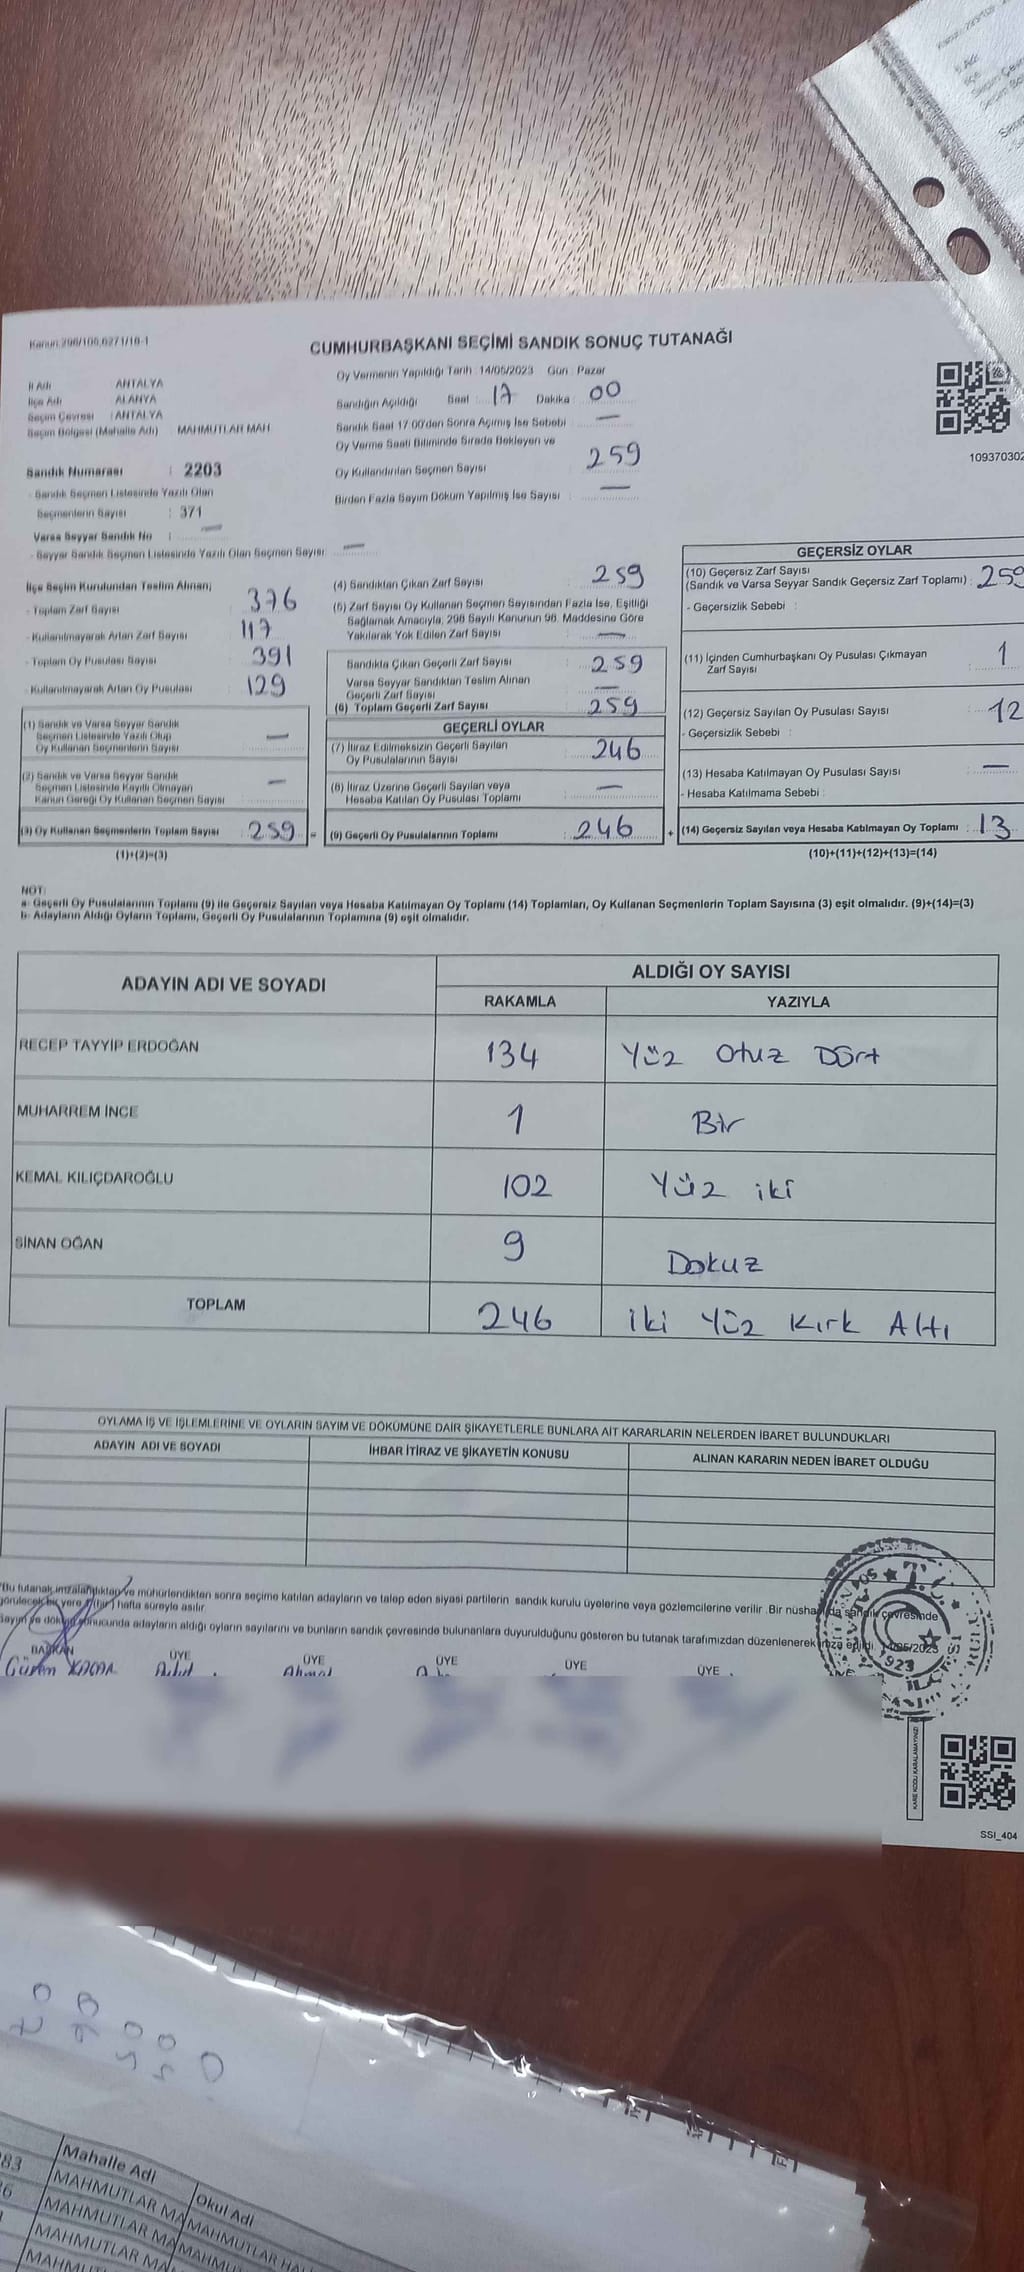 Kanun:298/105,6271/16-1
CUMHURBAŞKANI SEÇİMİ SANDIK SONUÇ TUTANAĞI
İl Adı ANTALYA
İlçe Adı ALANYA
Seçim Çevresi : ANTALYA
Seçim Bölgesi (Mahalle Adı) MAHMUTLAR MAH
Oy Vermenin Yapıldığı Tarih : 14/05/2023 Gün : Pazar
Sandığın Açıldığı Saat : 17 Dakika : 00
Sandık Saat 17:00'den Sonra Açılmış İse Sebebi —
Oy Verme Saati Bitiminde Sırada Bekleyen ve
Oy Kullandırılan Seçmen Sayısı 259
Birden Fazla Sayım Döküm Yapılmış İse Sayısı —
109370302
Sandık Numarası : 2203
- Sandık Seçmen Listesinde Yazılı Olan
Seçmenlerin Sayısı : 371
Varsa Seyyar Sandık No : —
- Seyyar Sandık Seçmen Listesinde Yazılı Olan Seçmen Sayısı —
İlçe Seçim Kurulundan Teslim Alınan;
- Toplam Zarf Sayısı 376
- Kullanılmayarak Artan Zarf Sayısı 117
- Toplam Oy Pusulası Sayısı 391
- Kullanılmayarak Artan Oy Pusulası 129
(1) Sandık ve Varsa Seyyar Sandık
Seçmen Listesinde Yazılı Olup
Oy Kullanan Seçmenlerin Sayısı —
(2) Sandık ve Varsa Seyyar Sandık
Seçmen Listesinde Kayıtlı Olmayan
Kanun Gereği Oy Kullanan Seçmen Sayısı —
(3) Oy Kullanan Seçmenlerin Toplam Sayısı 259 =
(1)+(2)=(3)
(4) Sandıktan Çıkan Zarf Sayısı 259
(5) Zarf Sayısı Oy Kullanan Seçmen Sayısından Fazla İse, Eşitliği
Sağlamak Amacıyla, 298 Sayılı Kanunun 98. Maddesine Göre
Yakılarak Yok Edilen Zarf Sayısı —
Sandıkta Çıkan Geçerli Zarf Sayısı 259
Varsa Seyyar Sandıktan Teslim Alınan
Geçerli Zarf Sayısı —
(6) Toplam Geçerli Zarf Sayısı 259
GEÇERLİ OYLAR
(7) İtiraz Edilmeksizin Geçerli Sayılan
Oy Pusulalarının Sayısı 246
(8) İtiraz Üzerine Geçerli Sayılan veya
Hesaba Katılan Oy Pusulası Toplamı —
(9) Geçerli Oy Pusulalarının Toplamı 246 +
GEÇERSİZ OYLAR
(10) Geçersiz Zarf Sayısı
(Sandık ve Varsa Seyyar Sandık Geçersiz Zarf Toplamı) : 259
- Geçersizlik Sebebi :
(11) İçinden Cumhurbaşkanı Oy Pusulası Çıkmayan
Zarf Sayısı 1
(12) Geçersiz Sayılan Oy Pusulası Sayısı 12
- Geçersizlik Sebebi :
(13) Hesaba Katılmayan Oy Pusulası Sayısı —
- Hesaba Katılmama Sebebi :
(14) Geçersiz Sayılan veya Hesaba Katılmayan Oy Toplamı : 13
(10)+(11)+(12)+(13)=(14)
NOT:
a- Geçerli Oy Pusulalarının Toplamı (9) ile Geçersiz Sayılan veya Hesaba Katılmayan Oy Toplamı (14) Toplamları, Oy Kullanan Seçmenlerin Toplam Sayısına (3) eşit olmalıdır. (9)+(14)=(3)
b- Adayların Aldığı Oyların Toplamı, Geçerli Oy Pusulalarının Toplamına (9) eşit olmalıdır.
ADAYIN ADI VE SOYADI
ALDIĞI OY SAYISI
RAKAMLA YAZIYLA
RECEP TAYYİP ERDOĞAN 134 Yüz Otuz Dört
MUHARREM İNCE 1 Bir
KEMAL KILIÇDAROĞLU 102 Yüz iki
SİNAN OĞAN 9 Dokuz
TOPLAM 246 iki Yüz Kırk Altı
OYLAMA İŞ VE İŞLEMLERİNE VE OYLARIN SAYIM VE DÖKÜMÜNE DAİR ŞİKAYETLERLE BUNLARA AİT KARARLARIN NELERDEN İBARET BULUNDUKLARI
ADAYIN ADI VE SOYADI İHBAR İTİRAZ VE ŞİKAYETİN KONUSU ALINAN KARARIN NEDEN İBARET OLDUĞU
Bu tutanak imzalandıktan ve mühürlendikten sonra seçime katılan adayların ve talep eden siyasi partilerin sandık kurulu üyelerine veya gözlemcilerine verilir. Bir nüshası da sandık çevresinde
görülecek bir yere 1 (bir) hafta süreyle asılır.
Sayım ve döküm sonucunda adayların aldığı oyların sayılarını ve bunların sandık çevresinde bulunanlara duyurulduğunu gösteren bu tutanak tarafımızdan düzenlenerek imza edildi. 14/05/2023
BAŞKAN ÜYE ÜYE ÜYE ÜYE ÜYE ÜYE
T.C.
1923
KARE KODU KARALAMAYINIZ!
SSI_404
Mahalle Adi Okul Adi
83 MAHMUTLAR MA MAHMUTLAR
MAHMUTLAR MA
MAHMUTLAR MA